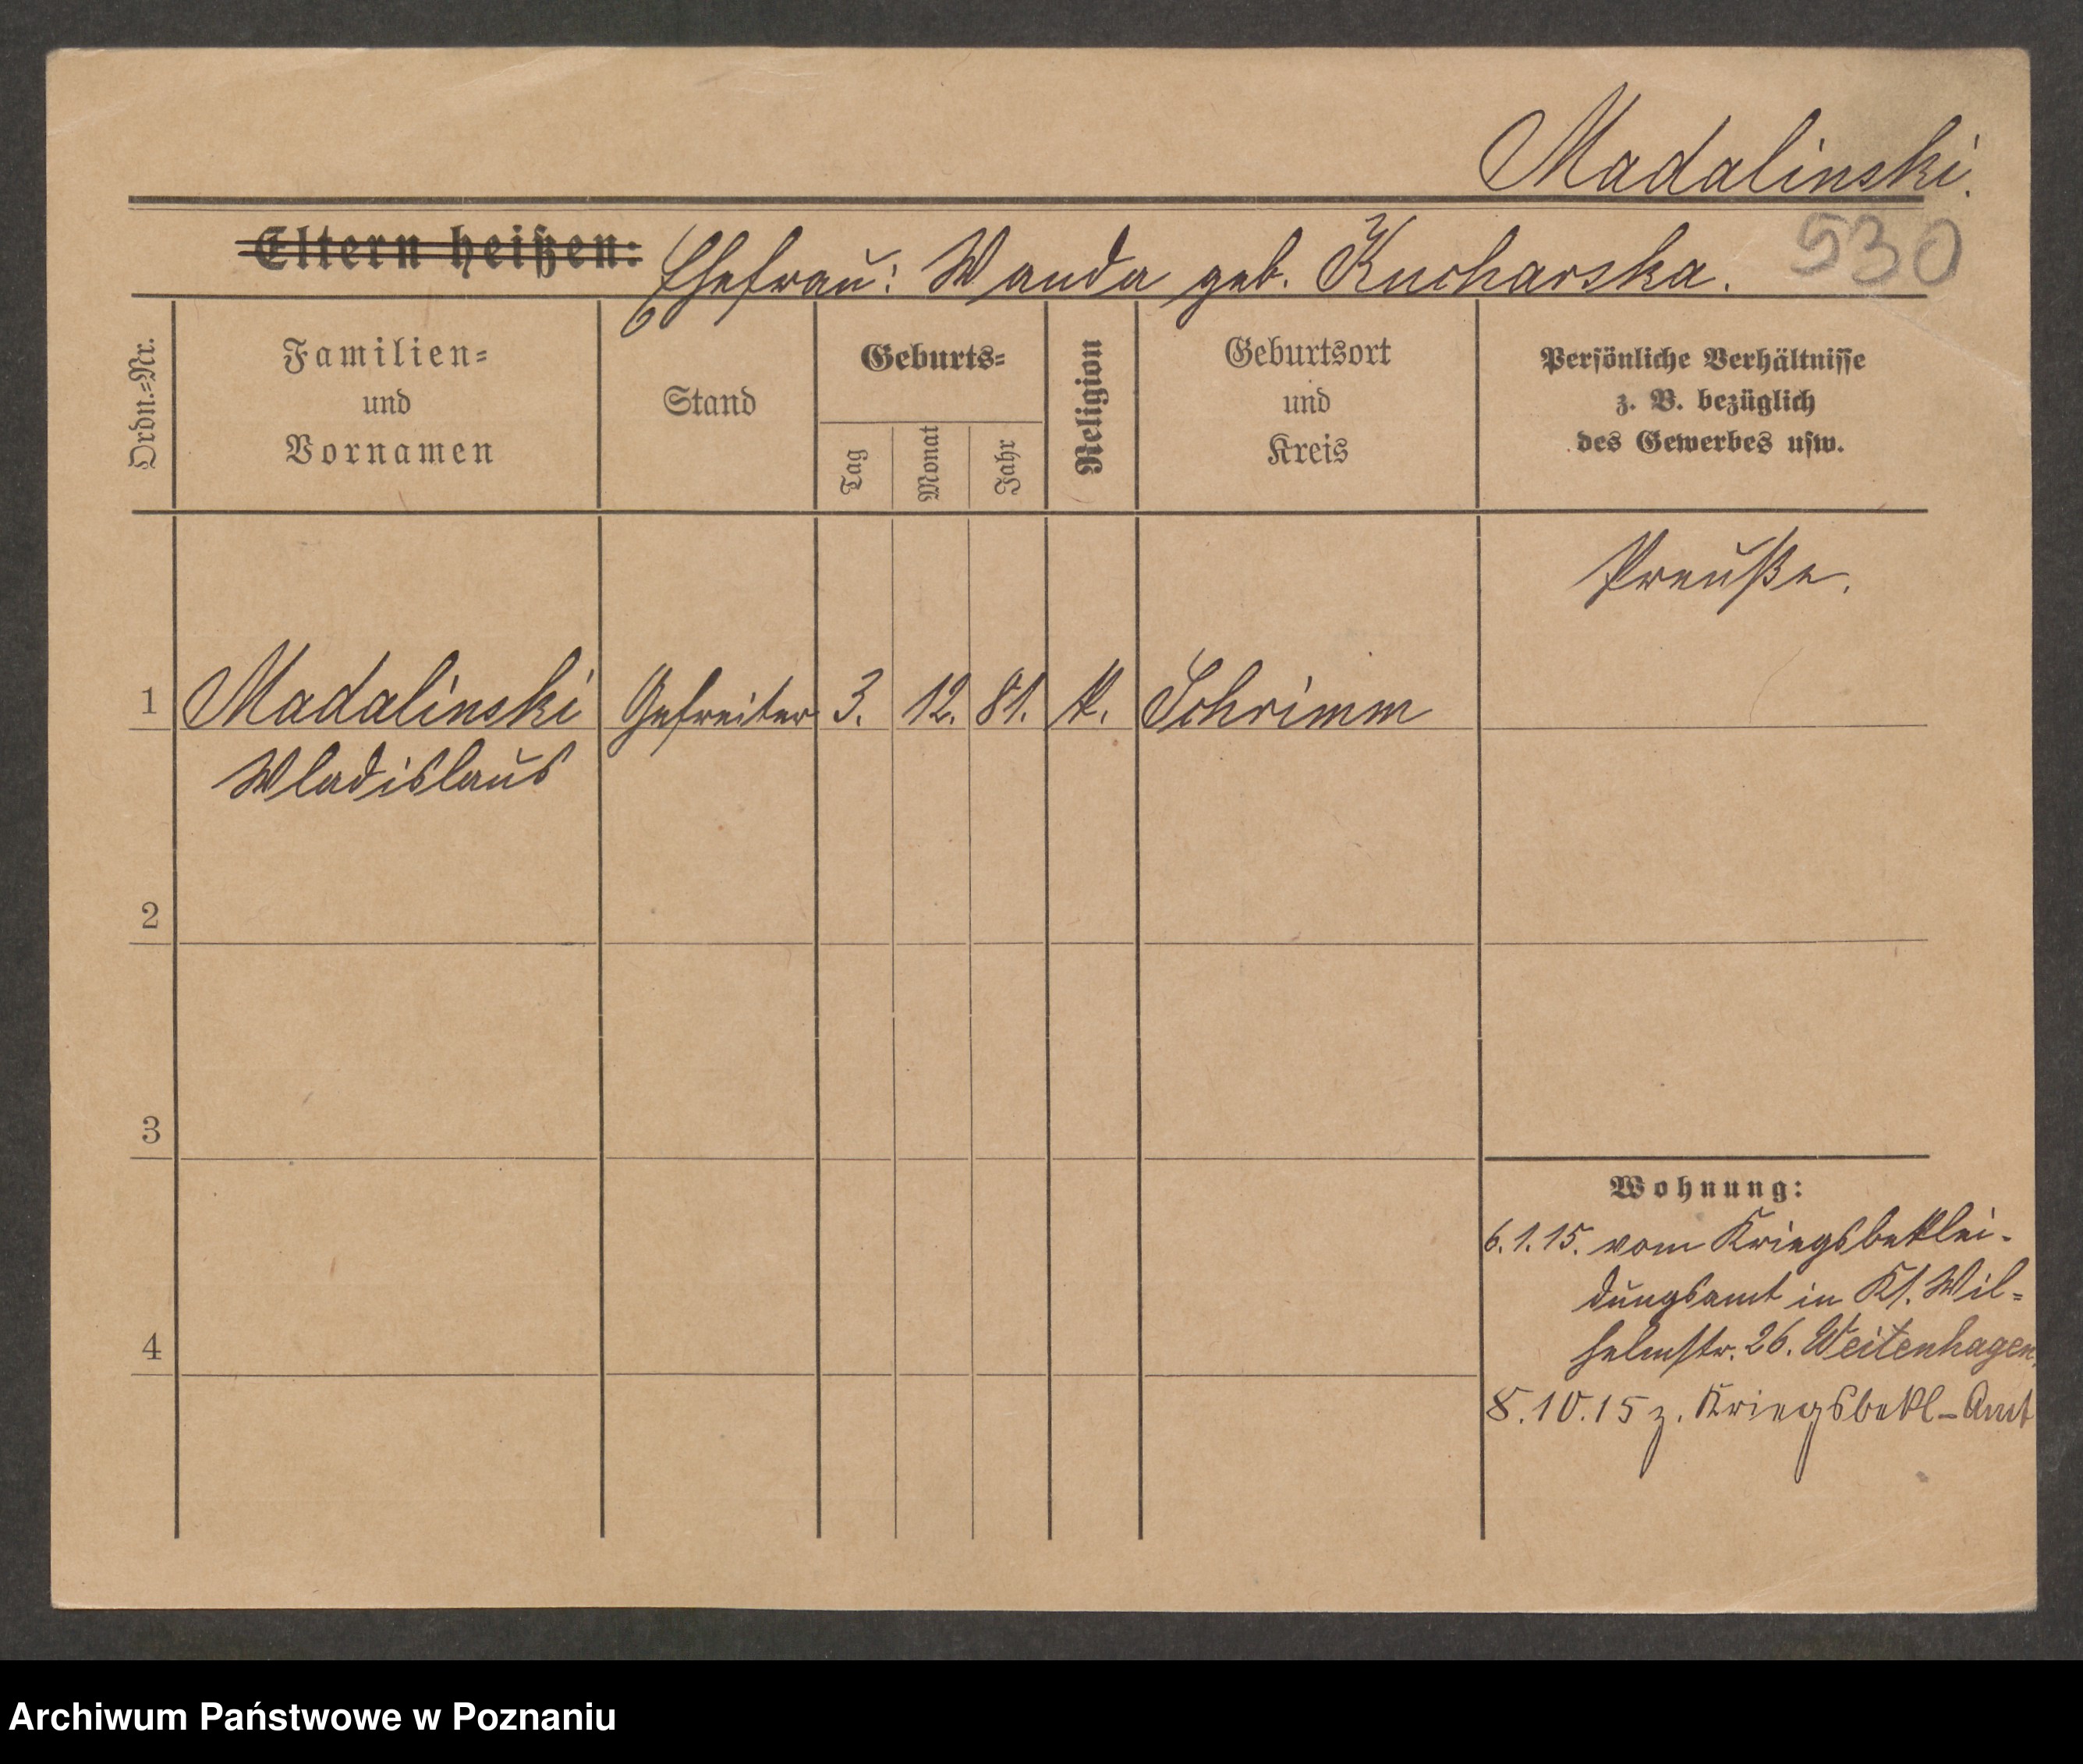 Madalinski.
Eltern heißen: Ehefrau: Wanda geb. Kucharska.
530
Ordn.=Nr.
Familien=
und
Vornamen
Stand
Geburts=
Tag
Monat
Jahr
Religion
Geburtsort
und
Kreis
Persönliche Verhältnisse
z. B. bezüglich
des Gewerbes usw.
Preuße.
1 Madalinski Gefreiter 3. 12. 81. k. Schrimm
Wladislaus
2
3
Wohnung:
6.1.15. vom Kriegsbeklei-
dungsamt in Kl. Wil=
4
helmstr. 26. Weitenhagen.
8.10.15 z. Kriegsbekl-Amt
Archiwum Państwowe w Poznaniu